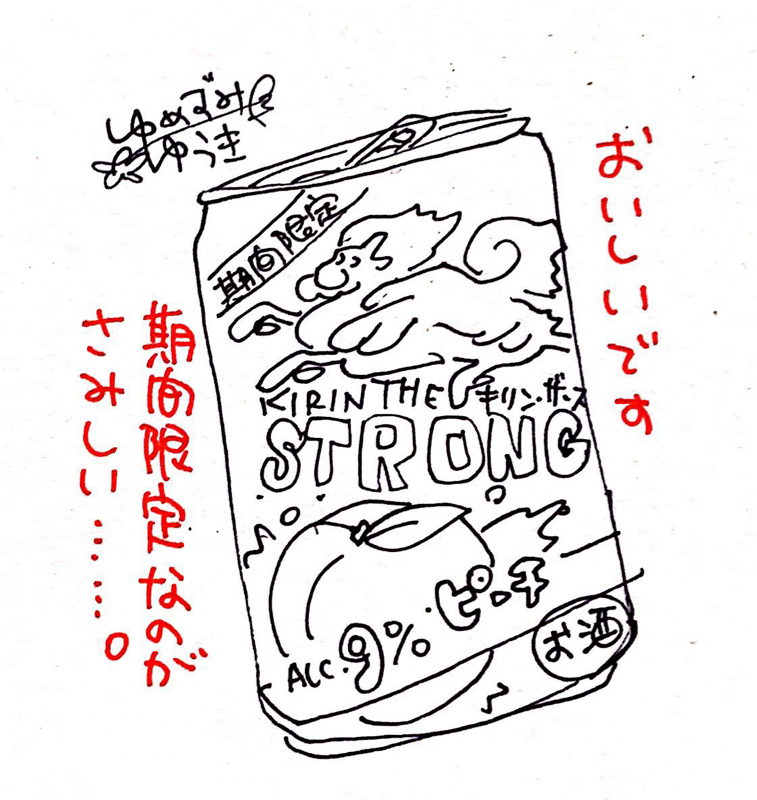 ゆめずみ
ゆうき
おいしいです
期間限定
KIRIN THE キリン・ザ・ス
STRONG
ピーチ
ALC.9%
お酒
期間限定なのが
さみしい………。